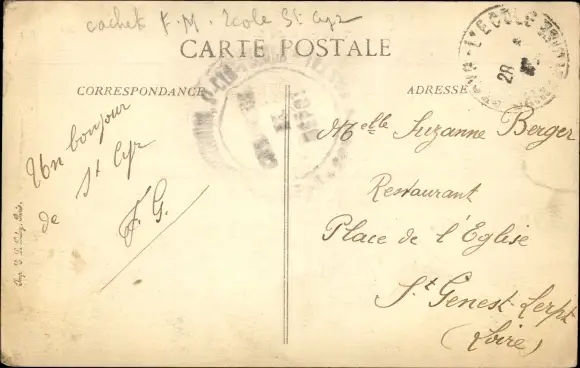 cachet F.M. Ecole St Cyr
CARTE POSTALE
CORRESPONDANCE
ADRESSE
Un bonjour
de St Cyr
F. G.
Melle Suzanne Berger
Restaurant
Place de l'Eglise
St Genest Lerpt
(Loire)
28